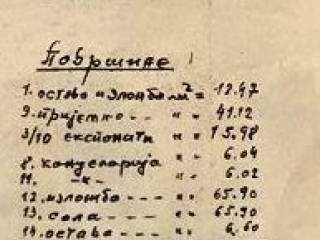 Површине
1. остава изложба м² = 12.47
9. пријемно - - " - 41.12
3/10 експонати " - 15.98
8. канцеларија " - 6.04
11. -"- " - 6.02
12. изложба - - - " - 65.90
13. сала - - - - " - 65.90
14. остава - - " - 6.60